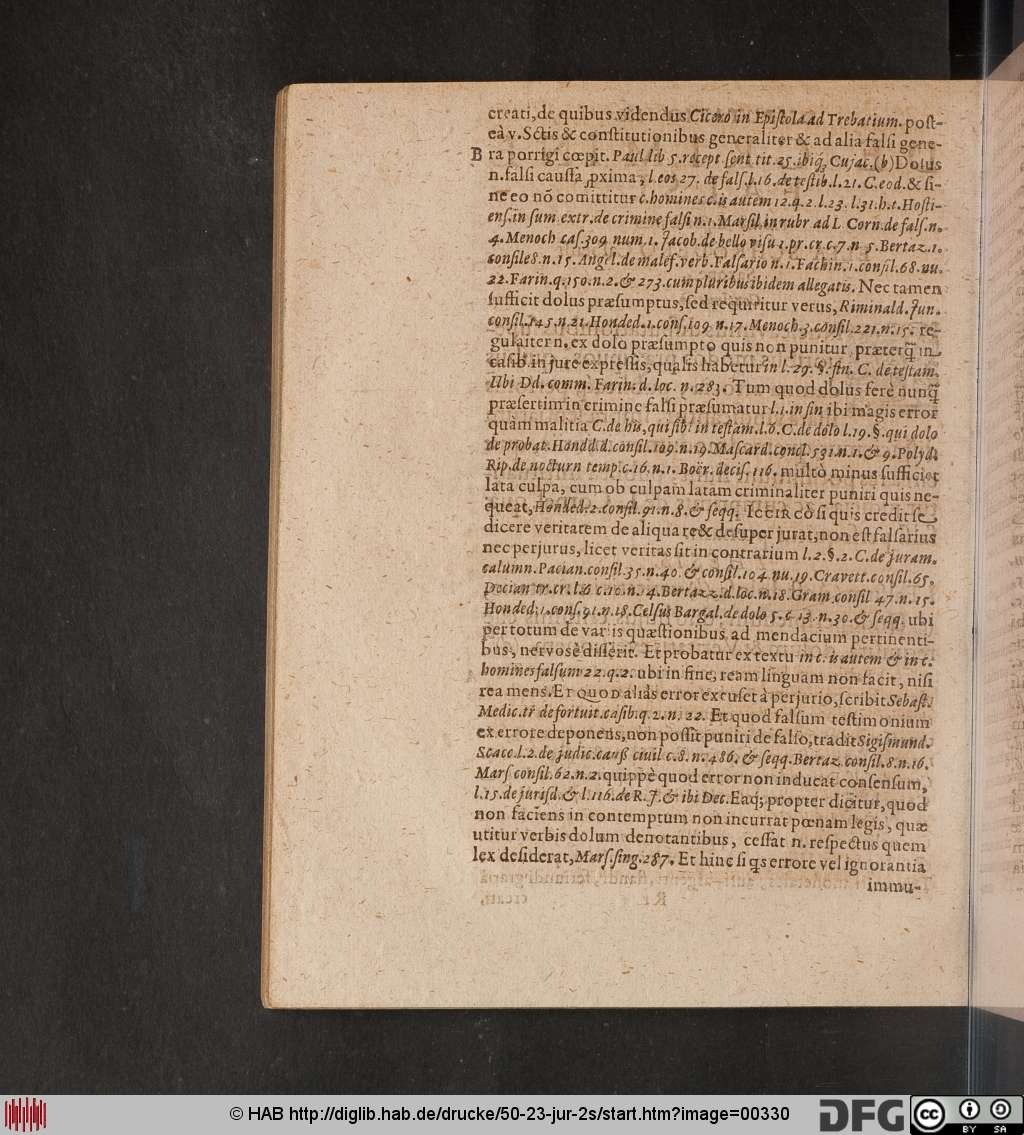 creati, de quibus videndus Cicero in Epistola ad Trebatium. post-
eà v. Sctis & constitutionibus generaliter & ad alia falsi gene-
B ra porrigi cœpit. Paul lib 5. recept sent. tit. 25. ibiq́; Cujac. (b) Dolus
n. falsi caussa ꝓxima, l. eos 27. de fals. l. 16. de testib. l. 21. C. eod. & si-
ne eo nō comittitur c. homines c. is autem 12. q. 2. l. 23. l. 31. h. t. Hosti-
ens. in sum extr. de crimine falsi n. 1. Marsil. in rubr ad L Corn. de fals. n.
4. Menoch cas. 309 num. 1. Jacob. de bello visu 1. pr. cr. c. 7. n 5. Bertaz. 1.
consile 8. n. 15. Angel. de malef. verb. Falsario n. 1. Fachin. 1. consil. 68. nu.
22. Farin. q. 150. n. 2. & 273. cum pluribus ibidem allegatis. Nec tamen
sufficit dolus præsumptus, sed requiritur verus, Riminald. Jun.
consil. 145. n. 21. Honded. 1. cons. 109 n. 17. Menoch. 3. consil. 221. n. 15. re-
gulaiter n. ex dolo præsumpto quis non punitur, præterq̃ in
casib. in jure expressis, qualis habetur in l. 29. §. fin. C. de testam.
Ubi Dd. comm. Farin. d. loc. n. 283. Tum quod dolus ferè nunq̃
præsertim in crimine falsi præsumatur l. 1. in fin ibi magis error
quàm malitia C. de his, qui sib. in testam. l. 6. C. de dolo l. 19. §. qui dolo
de probat. Hondd. d. consil. 109. n. 19. Mascard. concl. 531. n. 1. & 9. Polyd.
Rip. de nocturn temp. c. 16. n. 1. Boër. decis. 116. multò minus sufficiet
lata culpa, cum ob culpam latam criminaliter puniri quis ne-
queat, Honded. 2. consil. 91. n. 8. & seqq. Iccirco si quis credit se
dicere veritatem de aliqua re & desuper jurat, non est falsarius
nec perjurus, licet veritas sit in contrarium l. 2. §. 2. C. de juram.
calumn. Pacian. consil. 35. n. 40. & consil. 104. nu. 19. Cravett. consil. 65.
Decian tr. cr. l. 6 c. 10. n. 14. Bertazz. d. loc. n. 18. Gram consil 47. n. 15.
Honded. 1. cons. 91. n. 18. Celsus Bargal. de dolo 5. c 13. n. 30. & seqq. ubi
per totum de variis quæstionibus ad mendacium pertinenti-
bus, nervosè disserit. Et probatur ex textu in c. is autem & in c.
homines falsum 22. q. 2. ubi in fine, ream linguam non facit, nisi
rea mens. Et quod aliàs error excuset à perjurio, scribit Sebast.
Medic. tr̃ de fortuit. casib. q. 2. n. 22. Et quod falsum testimonium
ex errore deponens, non possit puniri de falso, tradit Sigismund.
Scacc. l. 2. de judic. cauß civil c. 8. n. 486. & seqq. Bertaz. consil. 8. n. 16.
Mars consil. 62. n. 2. quippè quod error non inducat consensum,
l. 15. de jurisd. & l. 116. de R. J. & ibi Dec. Eaq́; propter dicitur, quod
non faciens in contemptum non incurrat pœnam legis, quæ
utitur verbis dolum denotantibus, cessat n. respectus quem
lex desiderat, Mars. sing. 287. Et hinc si qs errore vel ignorantia
immu-
© HAB http://diglib.hab.de/drucke/50-23-jur-2s/start.htm?image=00330
DFG
cc BY SA